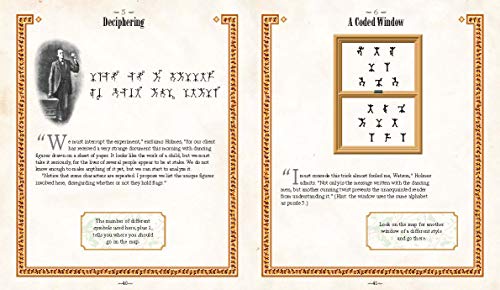 — 5 —
Deciphering
"We must interrupt the experiment," exclaims Holmes, "for our client
has received a very strange document this morning with dancing
figures drawn on a sheet of paper. It looks like the work of a child, but we must
take it seriously, for the lives of several people appear to be at stake. We do not
know enough to make anything of it yet, but we can start to analyze it.
"Notice that some characters are repeated. I propose we list the unique figures
involved here, disregarding whether or not they hold flags."
The number of different
symbols used here, plus 1,
tells you where you should
go on the map.
—40—
— 6 —
A Coded Window
"I must concede this trick almost fooled me, Watson," Holmes
admits. "Not only is the message written with the dancing
men, but another cunning twist prevents the unacquainted reader
from understanding it." (Hint: the window uses the same alphabet
as puzzle 5.)
Look on the map for another
window of a different style
and go there.
—41—